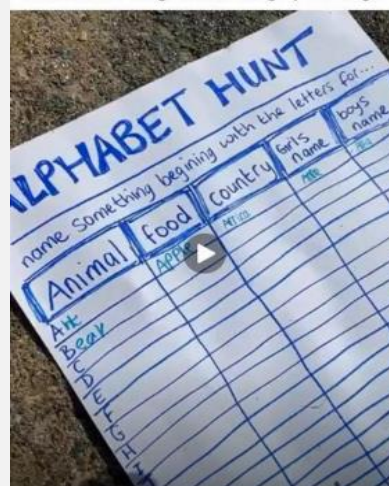 ALPHABET HUNT
name something begining with the letters for...
Animal food country Girls name boys name
Ant Apple Africa
Bear
C
D
E
F
G
H